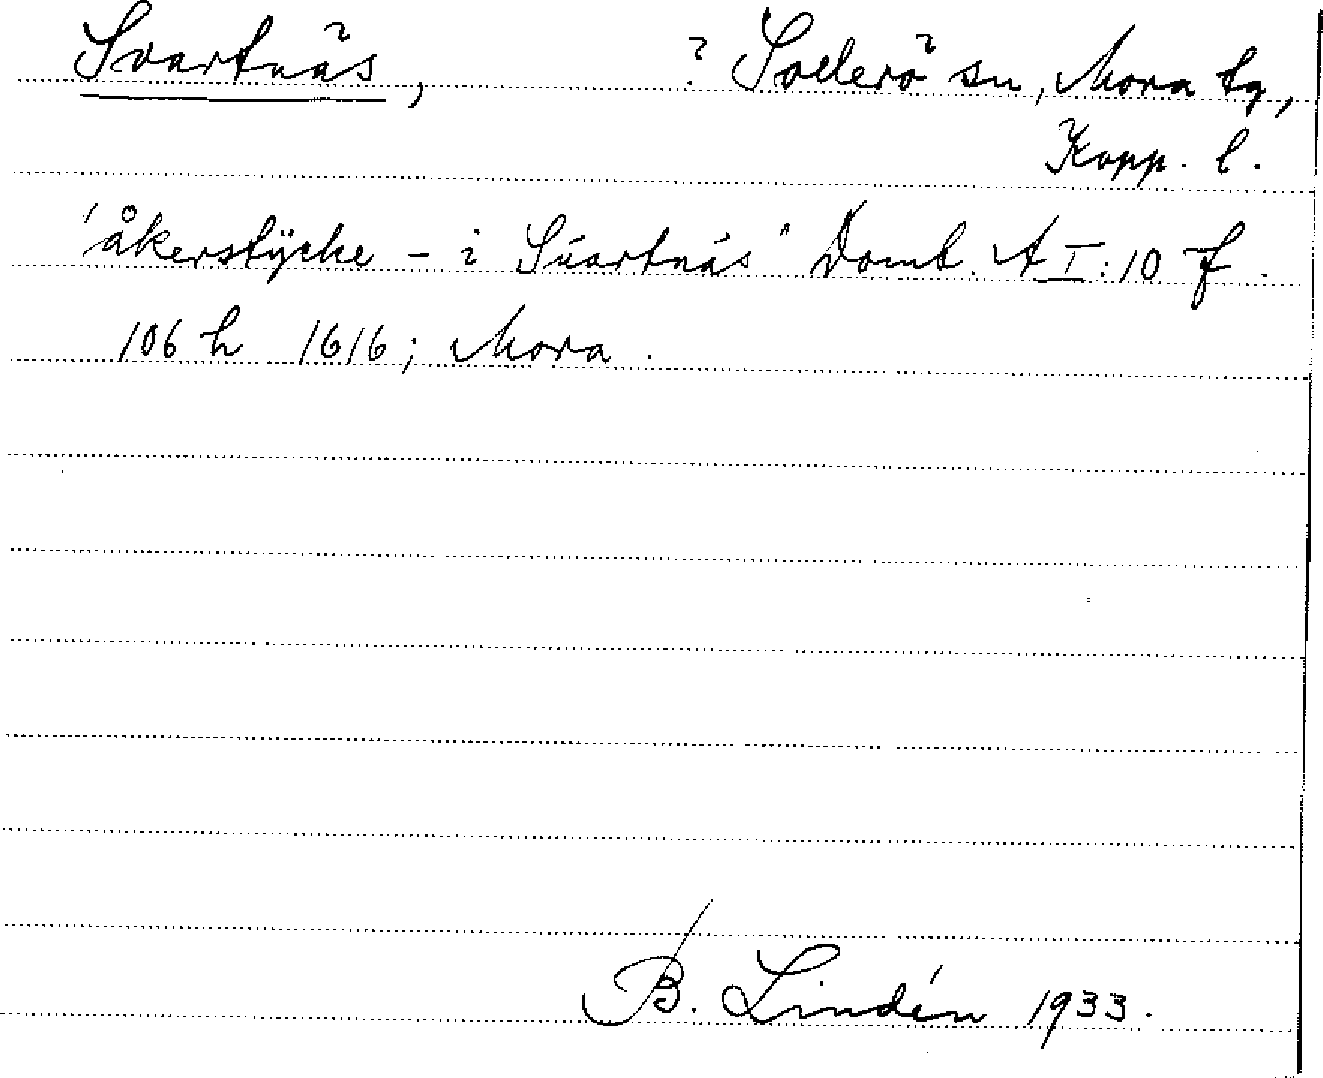 Svartnäs, ? Sollerö sn, Mora tg,
Kopp. l.
"åkerstÿcke – i Suartnäs" Domb. AI:10 f.
106 h 1616; Mora.
B. Lindén 1933.